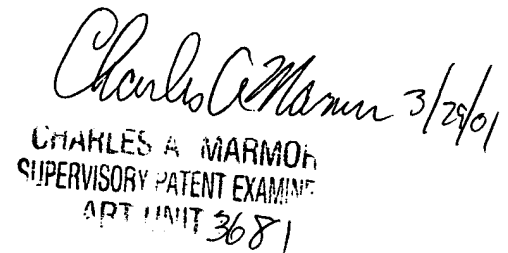 Charles A Marmor 3/29/01
CHARLES A MARMOR
SUPERVISORY PATENT EXAMINE
ART UNIT 3681